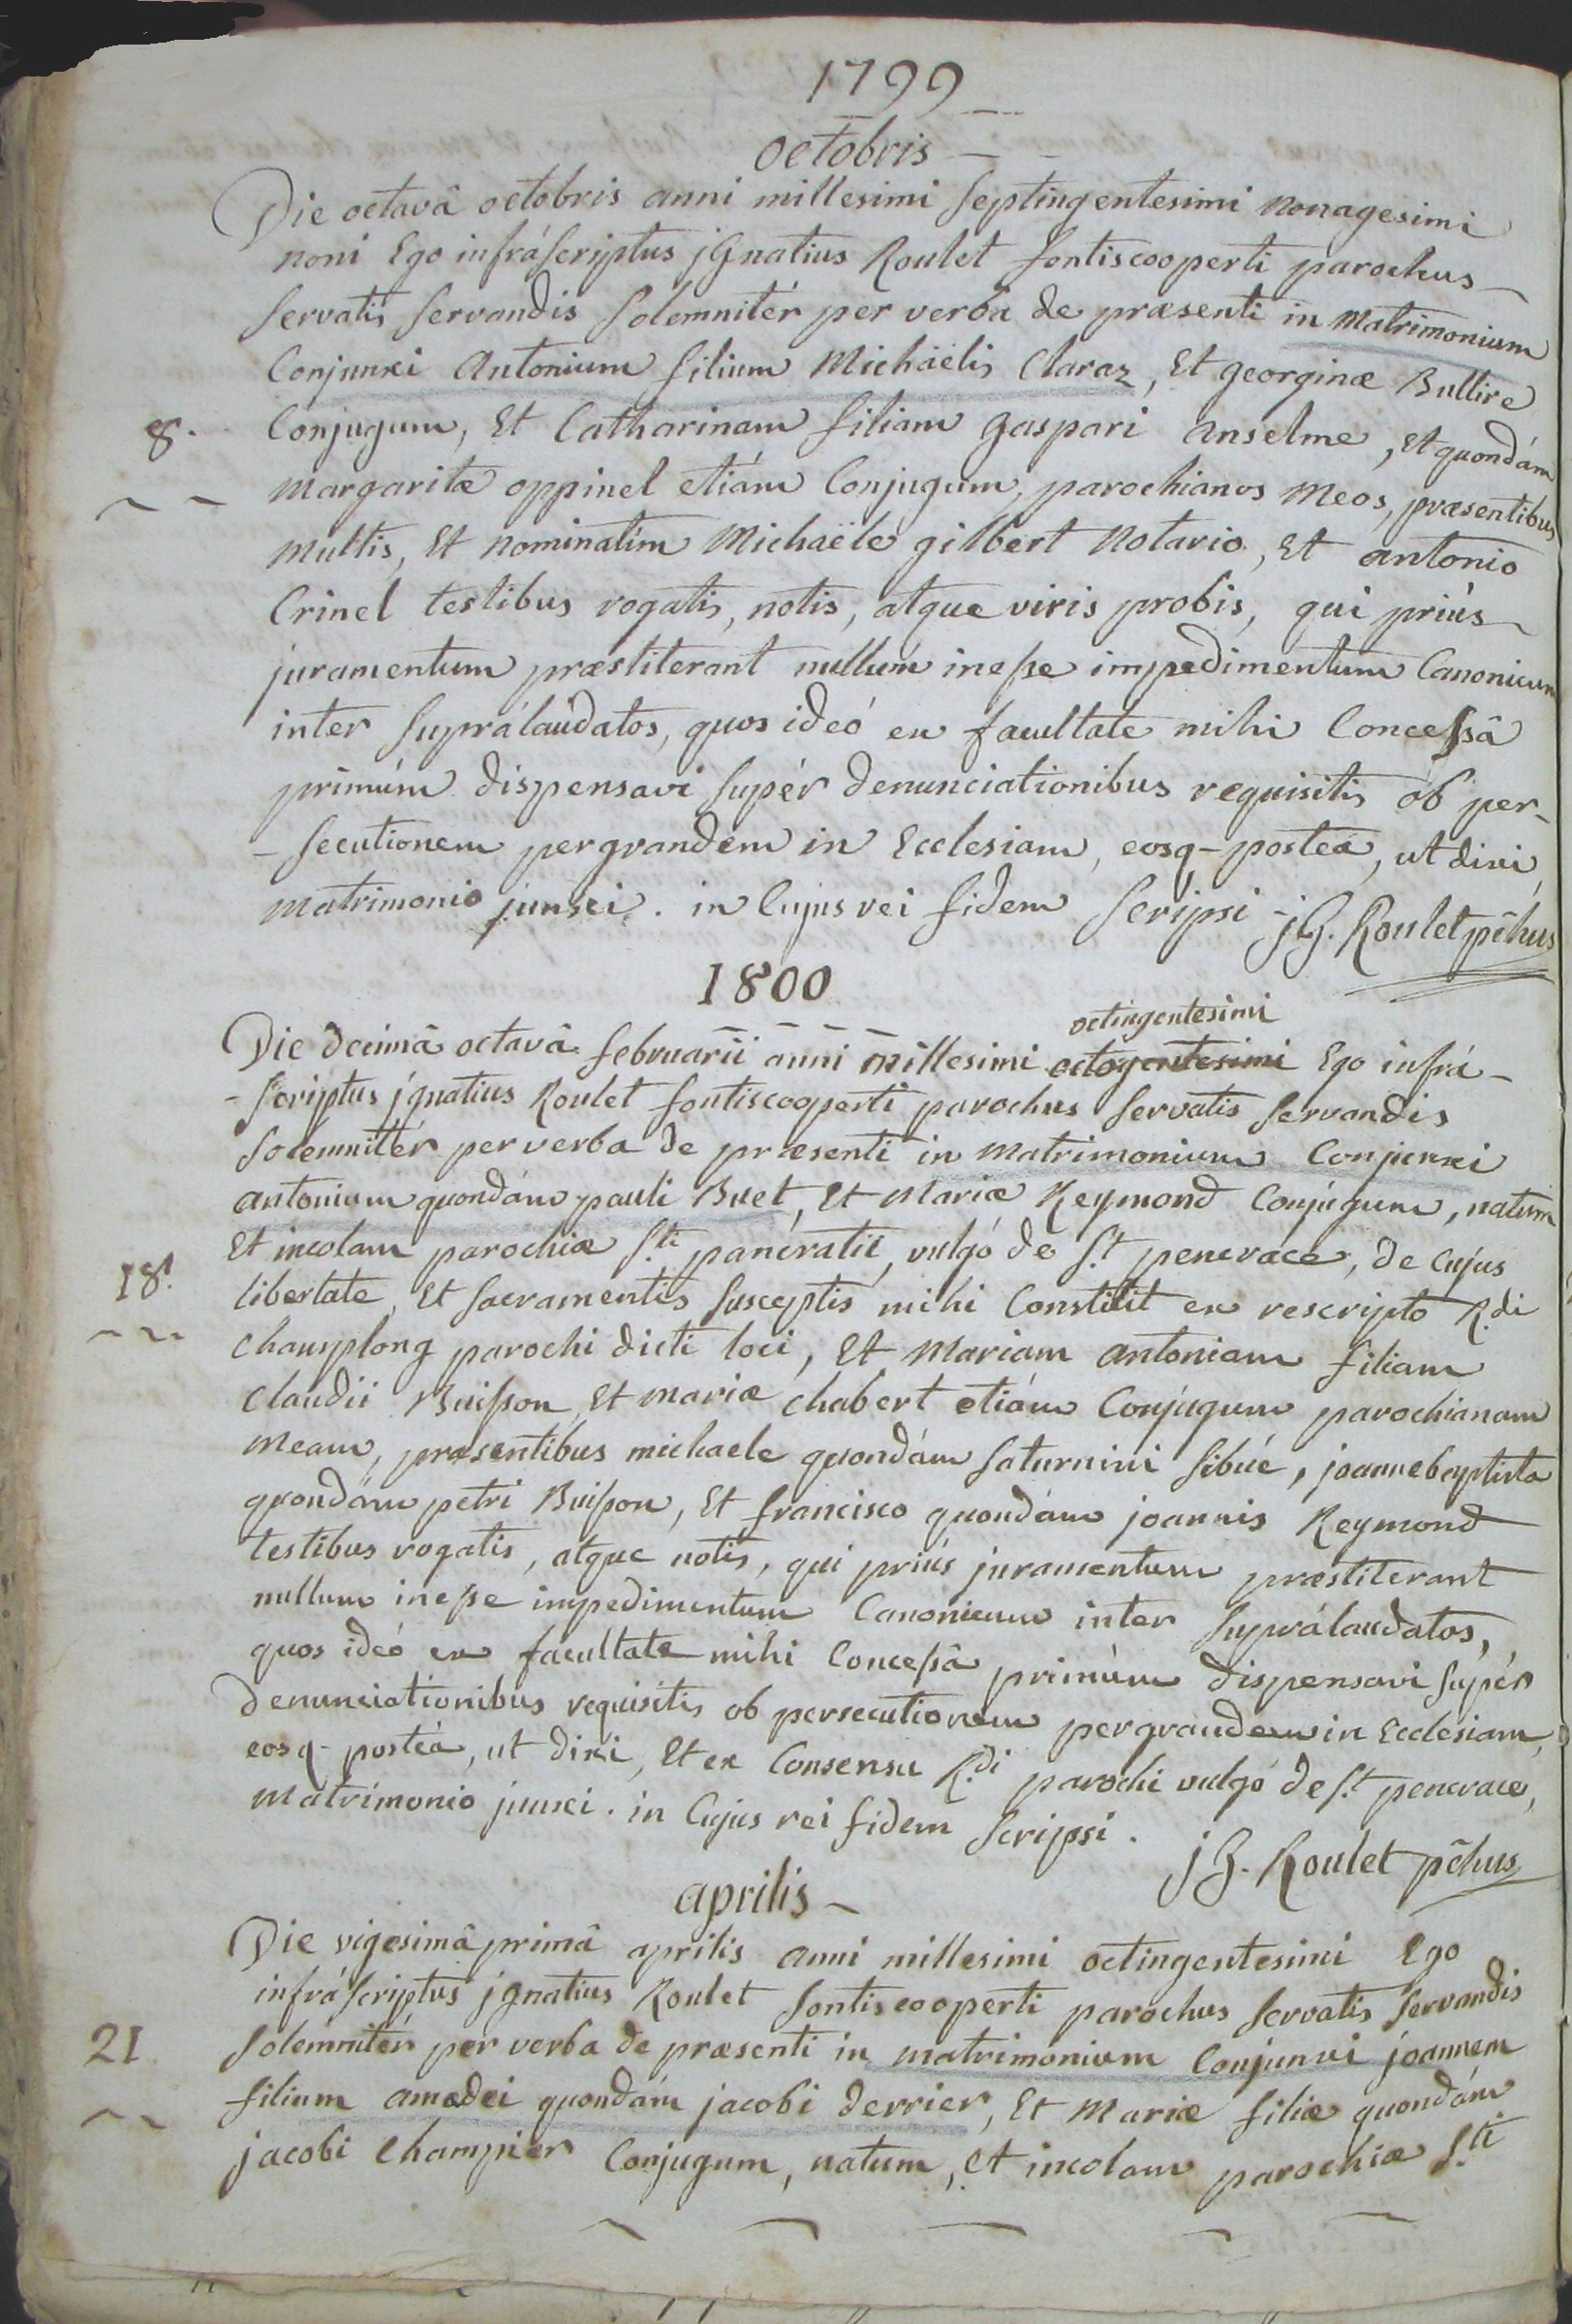 1799
octobris
Die octavâ octobris anni millesimi septingentesimi nonagesimi
noni Ego infráscriptus jGnatius Roulet fontiscooperti parochus
servatis servandis solemnitér per verba de præsenti in matrimonium
Conjunxi Antonium filium Michäelis Claraz, Et georginæ Bullire
8. Conjugum, Et Catharinam filiam gaspari anselme, Et quondám
margaritæ oppinel etiám Conjugum, parochianos meos, præsentibus
multis, Et nominatim Michaële gilbert Notario, Et antonio
Crinel testibus rogatis, notis, atque viris probis, qui priùs
juramentum præstiterant nullum inesse impedimentum Canonicum
inter suprálaudatos, quos ideó ex facultate mihi Concessâ
primúm dispensavi supér denunciationibus requisitis ob per-
-secutionem pergrandem in Ecclesiam, eosq- posteà, ut dixi,
matrimonio junxi. in Cujus rei fidem scripsi jG. Roulet pchus
1800
octingentesimi
Die decimâ octavâ februarii anni millesimi octogentesimi Ego infrá-
-scriptus jgnatius Roulet fontiscooperti parochus servatis servandis
solemnitér per verba de præsenti in matrimonium Conjunxi
antonium quondám pauli Buet, Et Mariæ Reymond Conjugum, natum
Et incolam parochiæ S.ti pancratii, vulgó de S.t pencrace, de Cujus
18. libertate, Et sacramentis susceptis mihi Constitit ex rescripto R.di
champlong parochi dicti loci, Et Mariam antoniam filiam
claudii Buisson, Et mariæ chabert etiám Conjugum parochianam
meam, præsentibus michaele quondám saturnini sibué, joannebaptista
quondám petri Buisson, Et francisco quondám joannis Reymond
testibus rogatis, atque notis, qui priús juramentum præstiterant
nullum inesse impedimentum Canonicum inter suprálaudatos,
quos ideó ex facultate mihi Concessâ primúm dispensavi supér
denunciationibus requisitis ob persecutionem pergrandem in Ecclesiam,
eosq- posteá, ut dixi, Et ex Consensu R.di parochi vulgó de S.t pencrace,
matrimonio junxi. in Cujus rei fidem scripsi.
jG. Roulet pchus
aprilis
Die vigesimâ primâ aprilis anni millesimi octingentesimi Ego
infráscriptus jgnatius Roulet fontiscooperti parochus servatis servandis
21 solemnitér per verba de præsenti in matrimonium Conjunxi joannem
filium amedei quondám jacobi derrier, Et Mariæ filiæ quondám
jacobi champier Conjugum, natum, Et incolam parochiæ S.ti